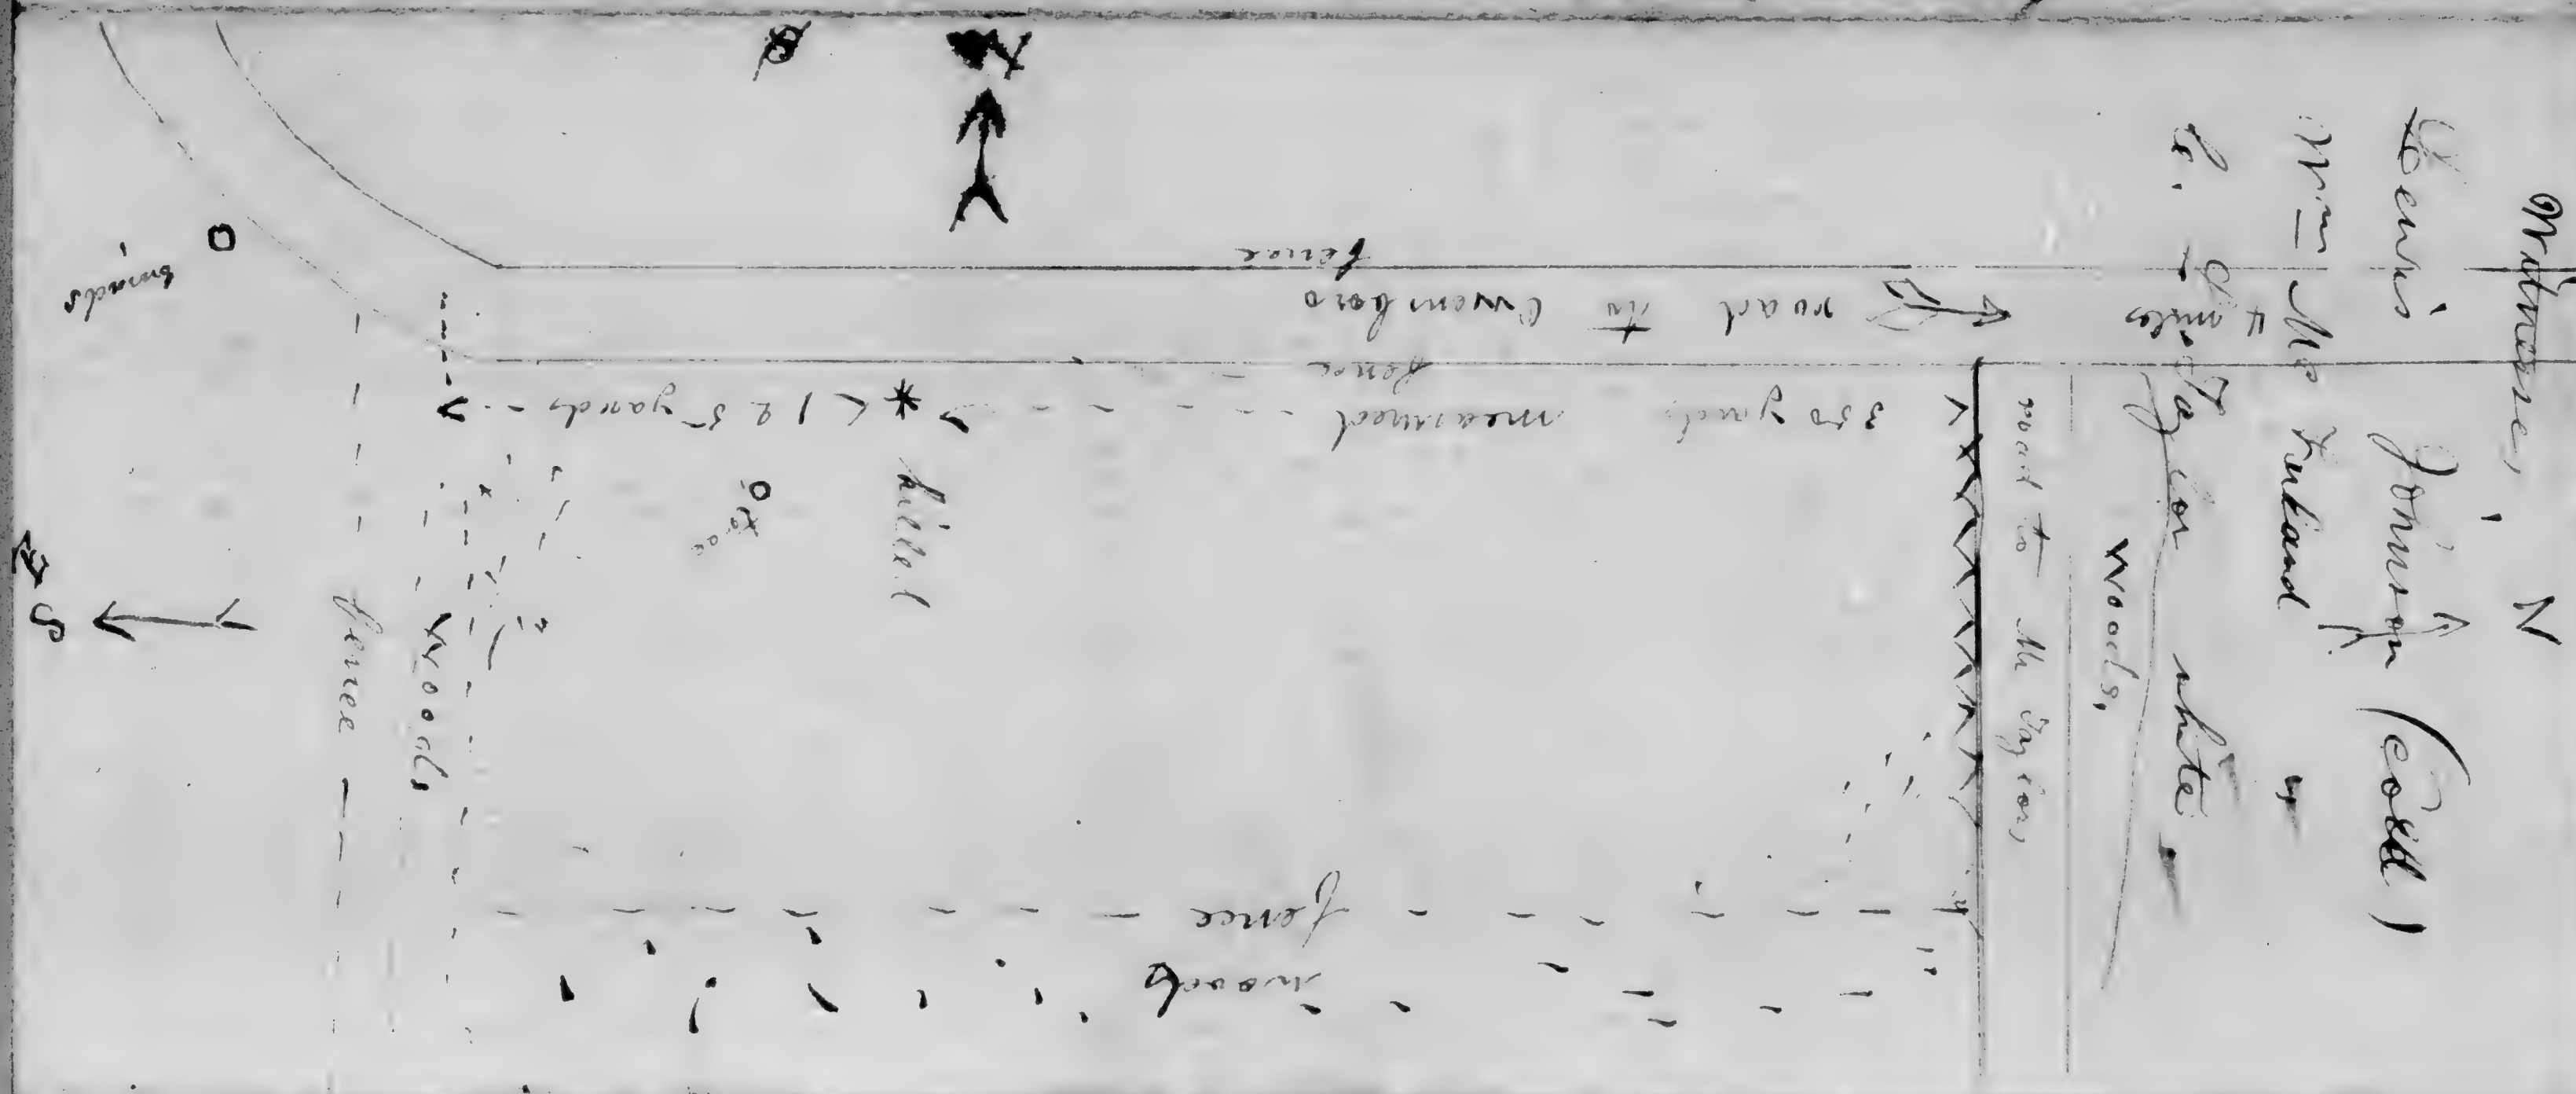 Witnesses,
Lewis Johnson (cold)
Wm Mc Farland "
C. G. Taylor white "
N
4 miles
woods,
road to Mr Taylors
fence
road to Owensboro
fence
350 yards measured
125 yards
killed
tree
woods
fence
fence
woods
S